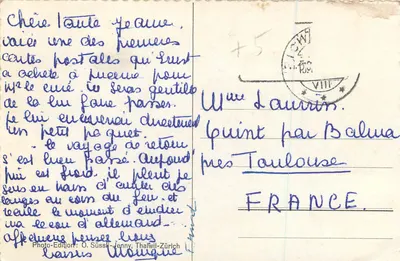 Chère Tante Jeanne.
voici une des premières
cartes postales qu'Ernst
a acheté à Lucerne pour
Mr le curé. tu serais gentille
de la lui faire passer.
Je lui enverrai directement
un petit paquet.
- le voyage de retour
s'est bien passé. Aujourd'
hui est froid, il pleut je
suis en train d'
langes au coin du feu. et
le moment d'
ma leçon d'allemand...
pensée, bons
baisers Monique
Mme Laurris
Quint par Balma
près Toulouse
FRANCE.
+5
VIII
Photo-Edition: O. Süssli-Jenny, Thalwil-Zürich